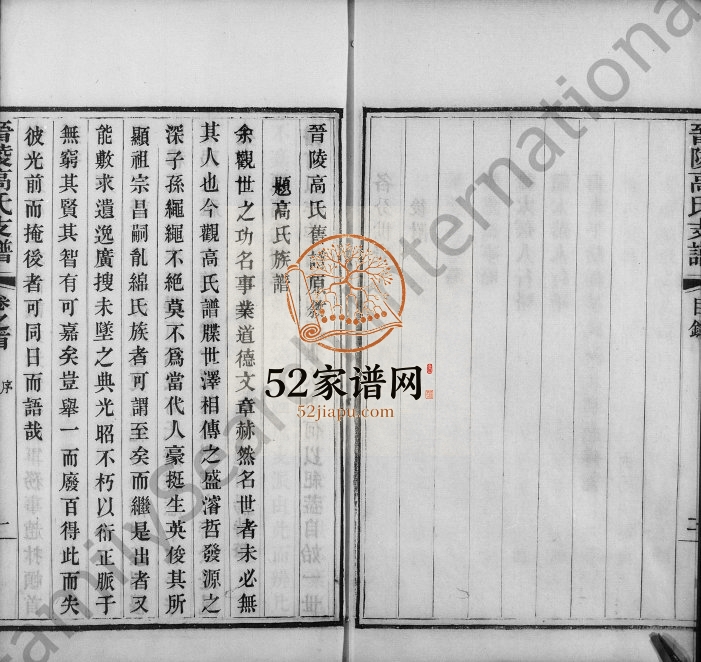 晉陵高氏支譜
目錄
晉陵高氏舊譜原
題高氏族譜
余觀世之功名事業道德文章赫然名世者未必無
其人也今觀高氏譜牒世澤相傳之盛濬哲發源之
深子孫繩繩不絕莫不爲當代人豪挺生英俊其所
顯祖宗昌嗣胤綿氏族者可謂至矣而繼是出者又
能敷求遺逸廣搜未墜之典光昭不朽以衍正脈于
無窮其賢其智有可嘉矣豈舉一而廢百得此而失
彼光前而掩後者可同日而語哉
晉陵高氏支譜
卷之首
序
二
52家谱网
52jiapu.com
FamilySearch International